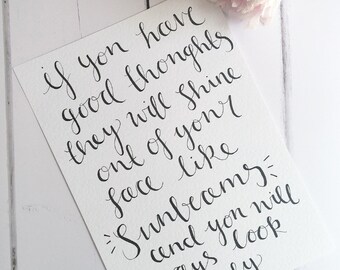 if you have
good thoughts
they will shine
out of your
face like
Sunbeams
and you will
ays look
ly